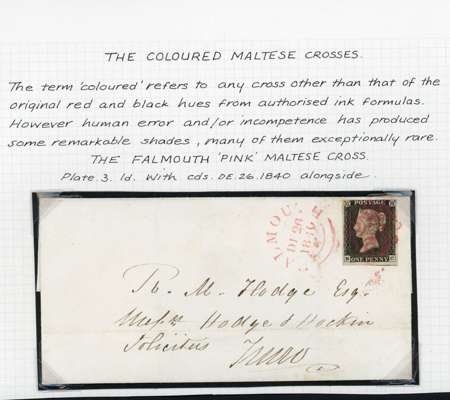 THE COLOURED MALTESE CROSSES.
The term 'coloured' refers to any cross other than that of the
original red and black hues from authorised ink formulas.
However human error and/or incompetence has produced
some remarkable shades, many of them exceptionally rare.
THE FALMOUTH 'PINK' MALTESE CROSS.
Plate 3. 1d. With cds. DE.26.1840 alongside.
FALMOUTH
DE 26
1840
ONE PENNY
R. M. Hodge Esqr.
Messrs Hodge & Hockin
Solicitors Truro